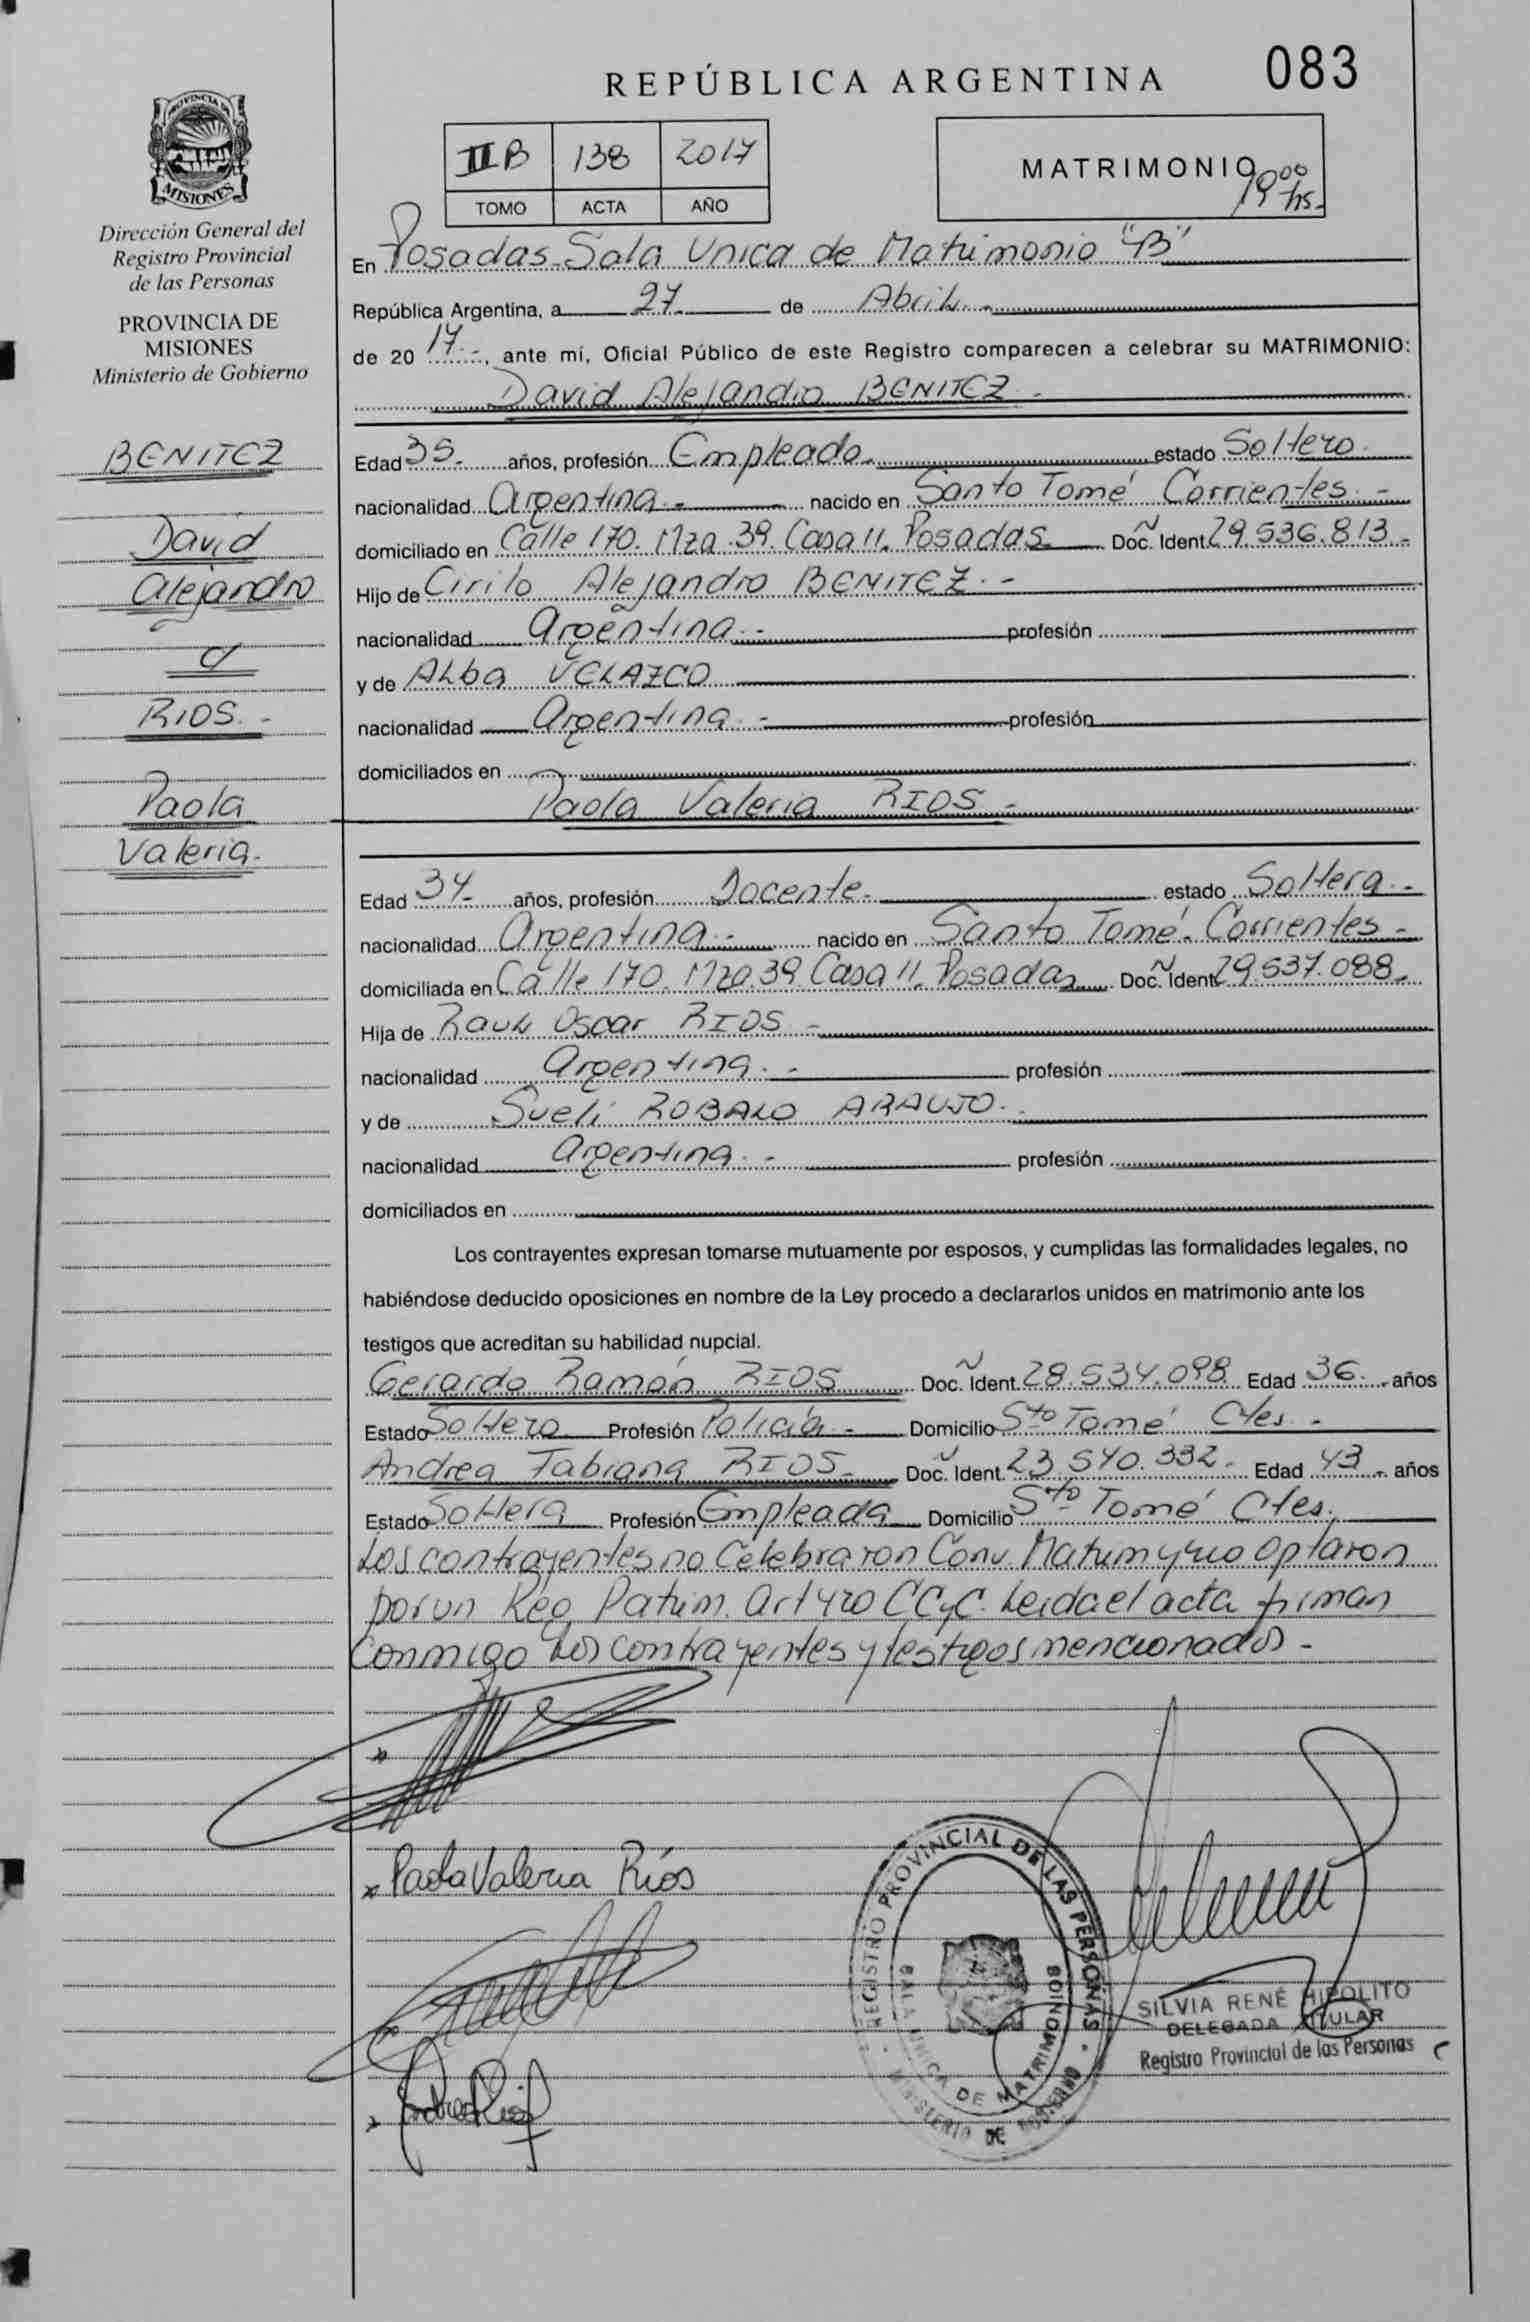 083
REPÚBLICA ARGENTINA
IIB 138 2017
TOMO ACTA AÑO
MATRIMONIO
19 00 hs.-
PROVINCIA DE
MISIONES
Dirección General del
Registro Provincial
de las Personas
PROVINCIA DE
MISIONES
Ministerio de Gobierno
BENITEZ
David
Alejandro
c/
RIOS.-
Paola
Valeria.
En Posadas-Sala Unica de Matrimonio "B"
República Argentina, a 27 de Abril.-
de 2017.-, ante mí, Oficial Público de este Registro comparecen a celebrar su MATRIMONIO:
David Alejandro BENITEZ.-
Edad 35.- años, profesión Empleado. estado Soltero.
nacionalidad Argentina.- nacido en Santo Tomé Corrientes.-
domiciliado en Calle 170. Mza.39. Casa 11. Posadas. Doc. Ident. 29.536.813.-
Hijo de Cirilo Alejandro BENITEZ.-
nacionalidad Argentina.- profesión
y de Alba VELAZCO
nacionalidad Argentina.- profesión
domiciliados en
Paola Valeria RIOS.-
Edad 34.- años, profesión Docente.- estado Soltera.-
nacionalidad Argentina.- nacido en Santo Tomé. Corrientes-
domiciliada en Calle 170. Mza.39. Casa 11. Posadas Doc. Ident. 29.537.088.-
Hija de Raul Oscar RIOS-
nacionalidad Argentina.- profesión
y de Sueli ROBALO ARAUJO.
nacionalidad Argentina.- profesión
domiciliados en
Los contrayentes expresan tomarse mutuamente por esposos, y cumplidas las formalidades legales, no
habiéndose deducido oposiciones en nombre de la Ley procedo a declararlos unidos en matrimonio ante los
testigos que acreditan su habilidad nupcial.
Gerardo Ramón RIOS Doc. Ident. 28.534.098 Edad 36.- años
Estado Soltero Profesión Policía- Domicilio Sto Tomé Ctes.-
Andrea Fabiana RIOS- Doc. Ident. 23.540.332. Edad 43.- años
Estado Soltera Profesión Empleada Domicilio Sto Tomé Ctes.
Los contrayentes no Celebraron Conv. Matrim y no optaron
por un Reg. Patrim. art 420 CCyC. Leida el acta firman
conmigo Los contrayentes y testigos mencionados-
Paola Valeria Ríos
REGISTRO PROVINCIAL DE LAS PERSONAS
SALA UNICA DE MATRIMONIOS
MINISTERIO DE GOBIERNO
SILVIA RENÉ HIPOLITO
DELEGADA TITULAR
Registro Provincial de las Personas